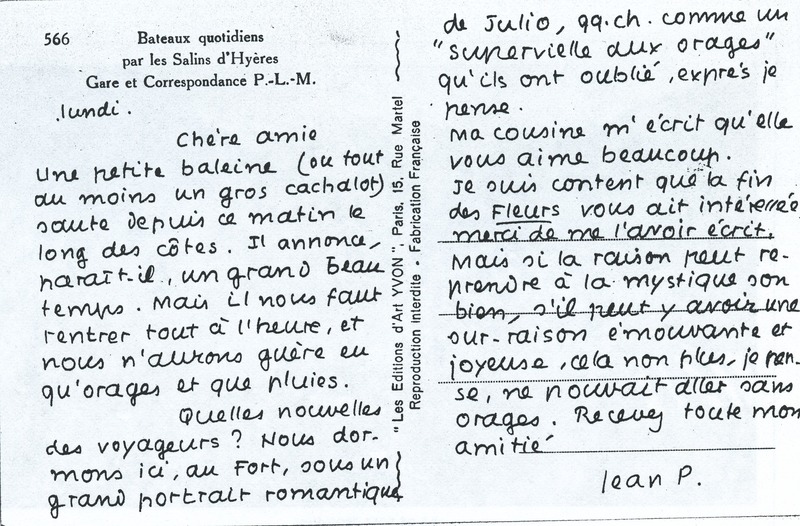 566
Bateaux quotidiens
par les Salins d'Hyères
Gare et Correspondance P.-L.-M.
lundi.
Chère amie
Une petite baleine (ou tout
au moins un gros cachalot)
saute depuis ce matin le
long des côtes. Il annonce,
paraît-il, un grand beau
temps. Mais il nous faut
rentrer tout à l'heure, et
nous n'aurons guère eu
qu'orages et que pluies.
Quelles nouvelles
des voyageurs ? Nous dor-
mons ici, au Fort, sous un
grand portrait romantique
"Les Editions d'Art YVON", Paris, 15, Rue Martel
Reproduction Interdite - Fabrication Française
de Julio, qq.ch. comme un
"Supervielle aux orages"
qu'ils ont oublié, exprès je
pense.
Ma cousine m'écrit qu'elle
vous aime beaucoup.
Je suis content que la fin
des Fleurs vous ait intéressée
merci de me l'avoir écrit.
Mais si la raison peut re-
prendre à la mystique son
bien, s'il peut y avoir une
sur-raison émouvante et
joyeuse, cela non plus, je pen-
se, ne pouvait aller sans
orages. Recevez toute mon
amitié
Jean P.